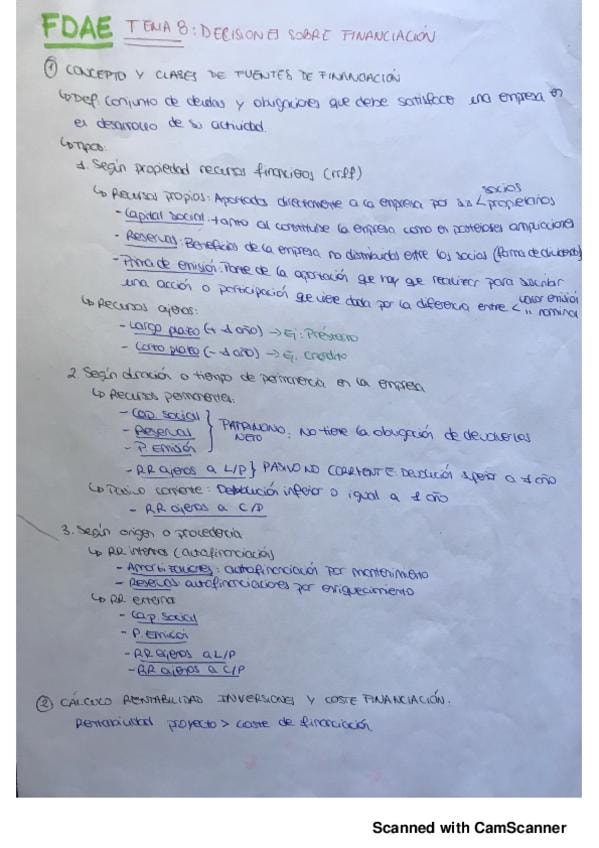 FDAE TEMA 8: DECISIONES SOBRE FINANCIACIÓN
① CONCEPTO Y CLASES DE FUENTES DE FINANCIACIÓN
↳ Def. Conjunto de deudas y obligaciones que debe satisfacer una empresa en
el desarrollo de su actividad.
↳ Tipos:
1. Según propiedad recursos financieros (rrff)
↳ Recursos propios: Aportados directamente a la empresa por sus < socios
propietarios
- Capital social: tanto al constituirse la empresa como en posteriores ampliaciones
- Reservas: Beneficios de la empresa no distribuidos entre los socios (forma de dividendo)
- Prima de emisión: Parte de la aportación que hay que realizar para suscribir
una acción o participación que viene dada por la diferencia entre < valor emisión
" nominal
↳ Recursos ajenos:
- Largo plazo (+ 1 año) → Ej: Préstamo
- Corto plazo (- 1 año) → Ej. Crédito
2. Según duración o tiempo de permanencia en la empresa
↳ Recursos permanentes:
- Cap. social
- Reservas } PATRIMONIO NETO: No tiene la obligación de devolverlas
- P. emisión
- RR ajenos a L/P } PASIVO NO CORRIENTE: Devolución superior a 1 año
↳ Pasivo corriente: Devolución inferior o igual a 1 año
- RR ajenos a C/P
3. Según origen o procedencia
↳ RR internos (autofinanciación)
- Amortizaciones: autofinanciación por mantenimiento
- Reservas autofinanciaciones por enriquecimiento
↳ RR externos
- Cap. social
- P. emisión
- RR ajenos a L/P
- RR ajenos a C/P
② CÁLCULO RENTABILIDAD INVERSIONES Y COSTE FINANCIACIÓN.
Rentabilidad proyecto > coste de financiación
Scanned with CamScanner